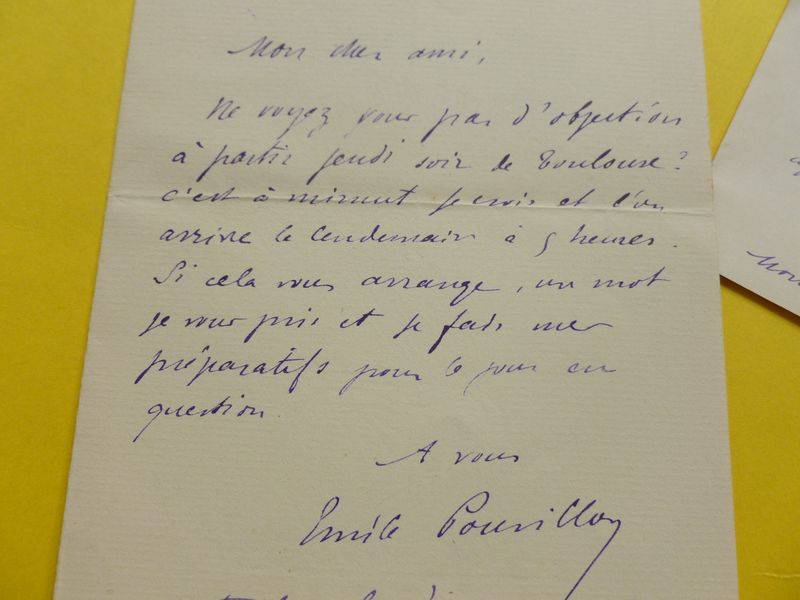 Mon cher ami,
Ne voyez vous pas d'objection
à partir jeudi soir de Toulouse?
c'est à minuit je crois et l'on
arrive le lendemain à 5 heures.
Si cela vous arrange, un mot
je vous prie et je fais mes
préparatifs pour le jour en
question.
A vous
Emile Pouvillon
Mon